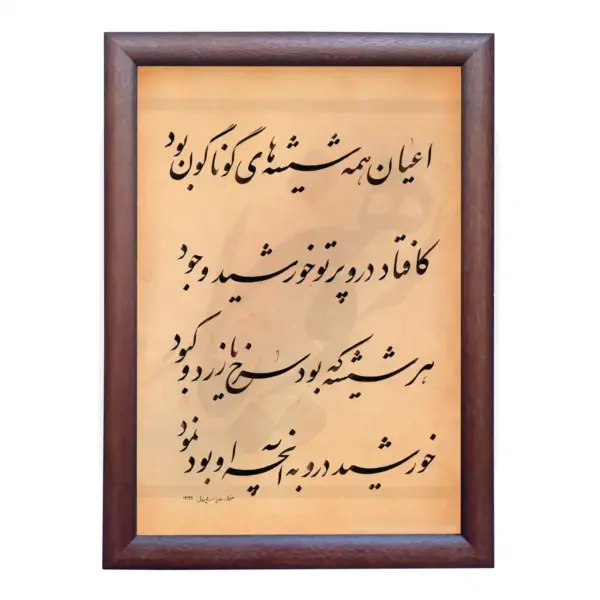 اعیان همه شیشه‌های گوناگون بود
کافتاد در و پرتو خورشید وجود
هر شیشه که بود سرخ یا زرد و کبود
خورشید در و به آنچه او بود نمود
۱۳۹۹